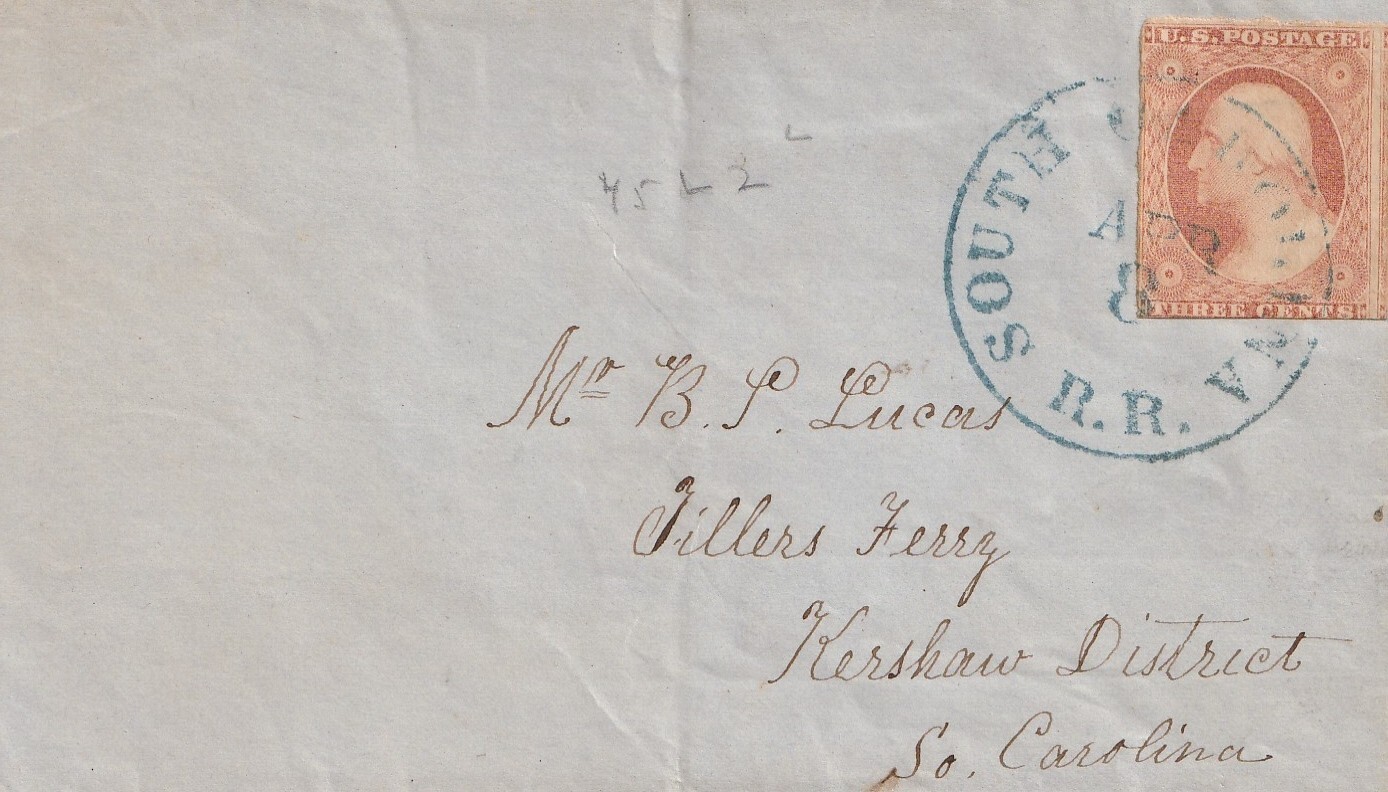 U.S. POSTAGE
THREE CENTS
SOUTH CAROLINA R.R.
APR
8
Mr B. P. Lucas
Tillers Ferry
Kershaw District
So. Carolina